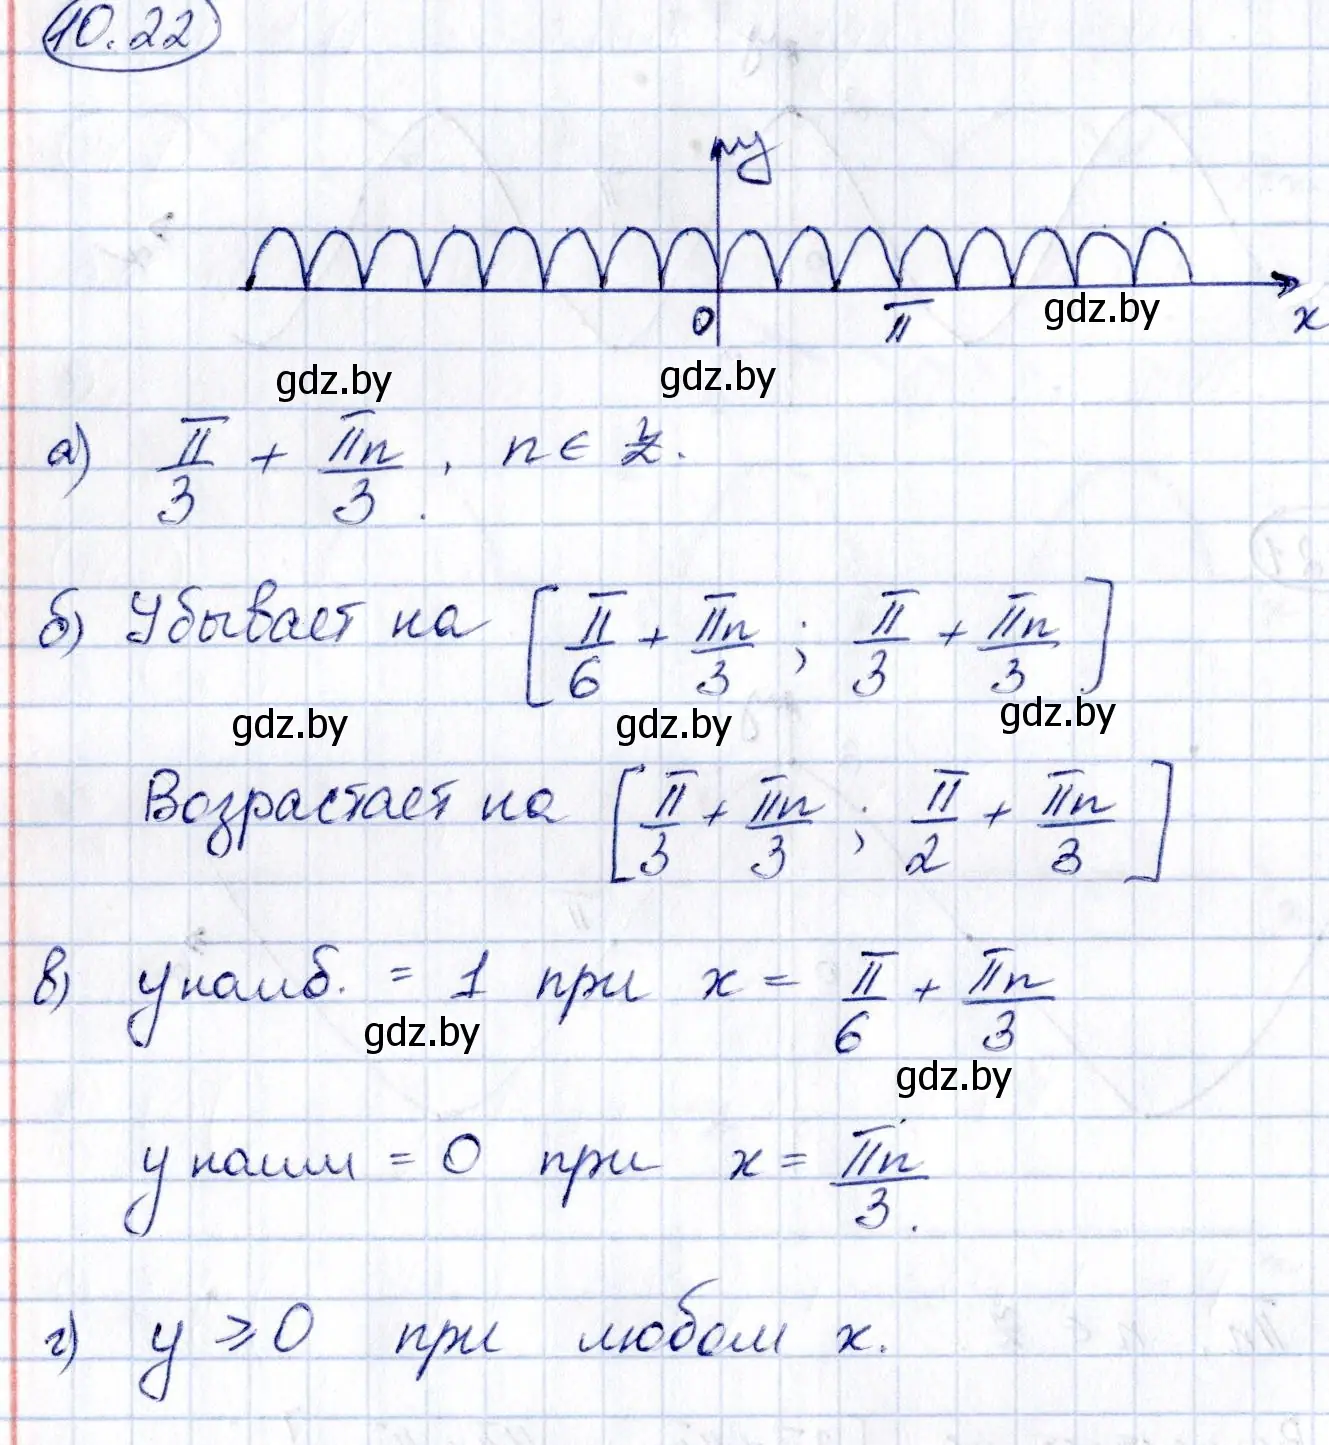 10.22
y
0 π x
gdz.by
gdz.by gdz.by
а) π/3 + πn/3, n ∈ Z.
б) Убывает на [π/6 + πn/3 ; π/3 + πn/3]
gdz.by gdz.by gdz.by
Возрастает на [π/3 + πn/3 ; π/2 + πn/3]
в) y наиб. = 1 при x = π/6 + πn/3
gdz.by
gdz.by
y наим = 0 при x = πn/3.
г) y ⩾ 0 при любом x.